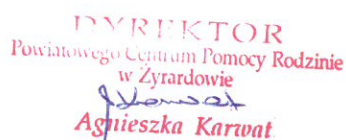 DYREKTOR
Powiatowego Centrum Pomocy Rodzinie
w Żyrardowie
Agnieszka Karwat